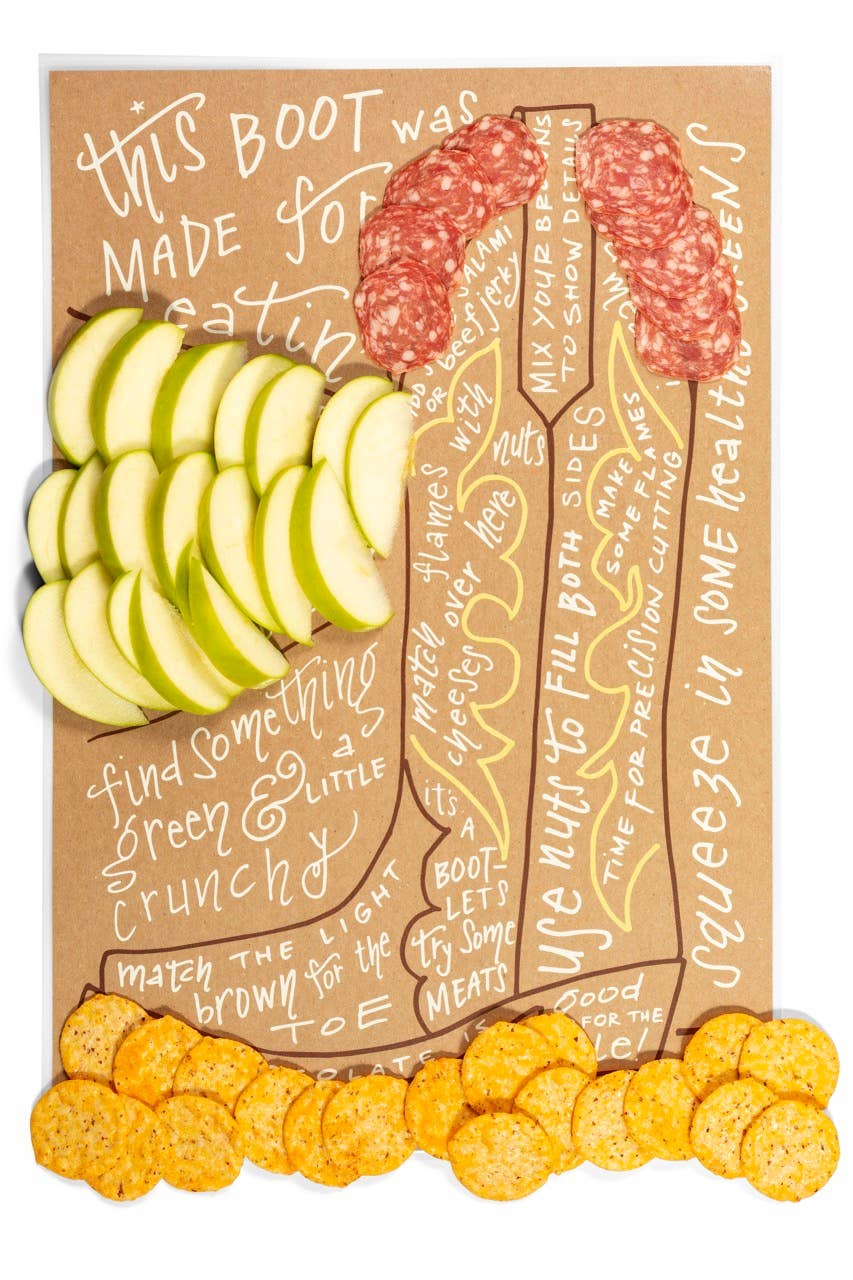 this BOOT was
MADE for
eatin
SALAMI
OR beef jerky
MIX YOUR BROWNS
TO SHOW DETAILS
match flames with nuts
cheeses over here
USE nuts to FILL BOTH SIDES
MAKE
SOME FLAMES
TIME FOR PRECISION CUTTING
squeeze in SOME healthy GREENS
find something
green & a LITTLE
crunchy
it's
A
BOOT-
LETS
try some
MEATS
match THE LIGHT
brown for the
TOE
good
FOR THE